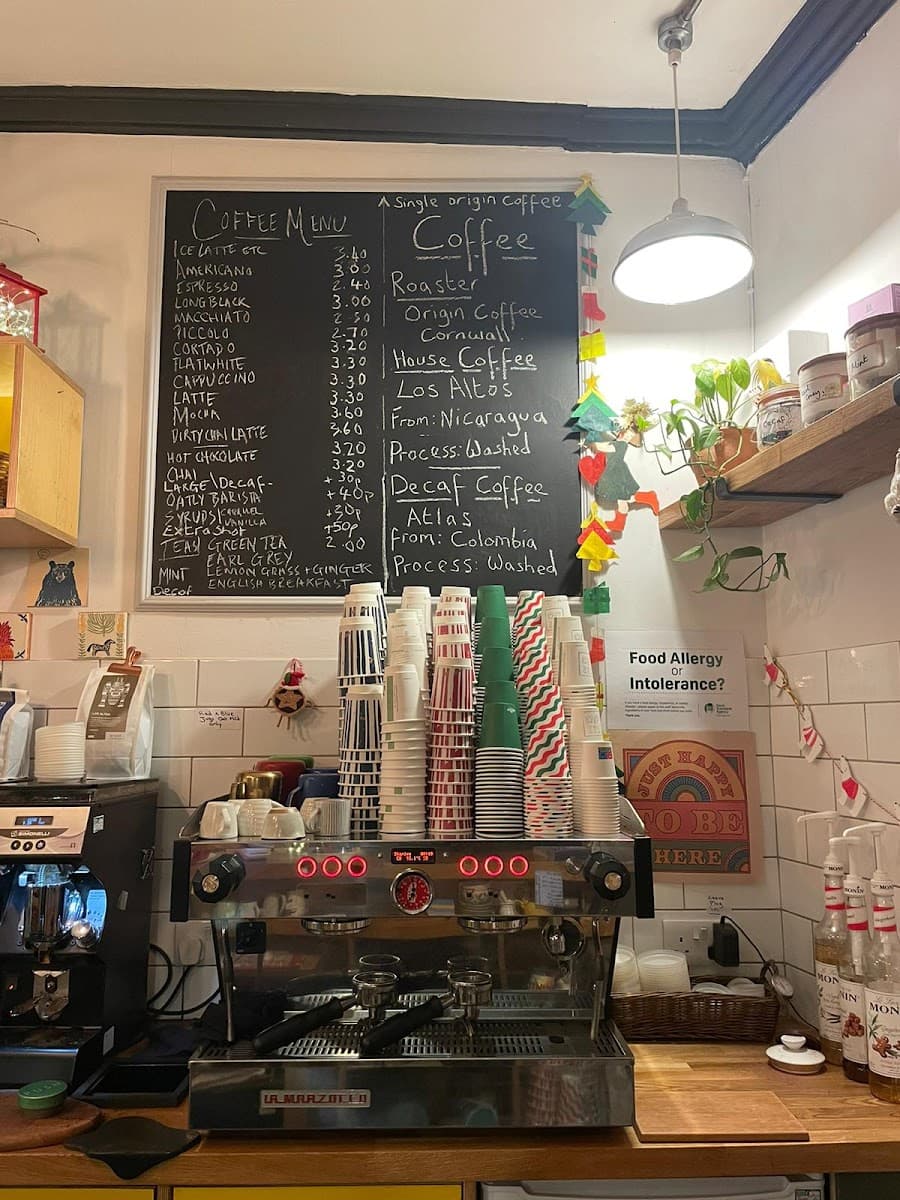 COFFEE MENU
ICE LATTE ETC 3.40
AMERICANO 3.00
ESPRESSO 2.40
LONG BLACK 3.00
MACCHIATO 2.50
PICCOLO 2.70
CORTADO 3.20
FLATWHITE 3.30
CAPPUCCINO 3.30
LATTE 3.30
MOCHA 3.60
DIRTY CHAI LATTE 3.60
HOT CHOCOLATE 3.20
CHAI 3.20
LARGE/Decaf- +30p
OATLY BARISTA +40p
SYRUPS/CARAMEL VANILLA +30p
EXTRA SHOT +50p
TEAS/ GREEN TEA 2.00
EARL GREY
MINT LEMON GRASS + GINGER
Decaf ENGLISH BREAKFAST
Single origin coffee
Coffee
Roaster
Origin Coffee
Cornwall.
House Coffee
Los Altos
From: Nicaragua
Process: Washed
Decaf Coffee
Atlas
from: Colombia
Process: Washed
Food Allergy
or
Intolerance?
Thank you.
JUST HAPPY
TO BE
HERE
SIMONELLI
LA MARZOCCO
MONIN
MONIN
MONIN
Decaf
Mint